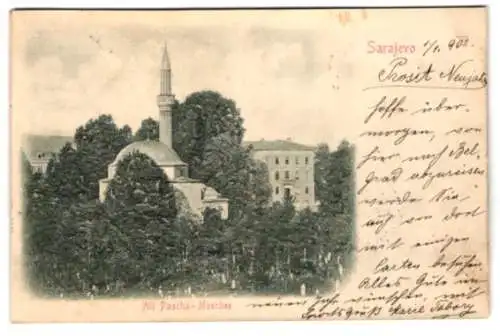 Sarajevo 1/1. 901
Prosit Neujahr
hoffe über-
morgen, von
hier nach Bel-
grad abzureisen
werde Sie
auf von dort
mit einigen
Karten
Alles Gute im
neuen wünschen
Marie Tabory
Ali Pascha-Moschee